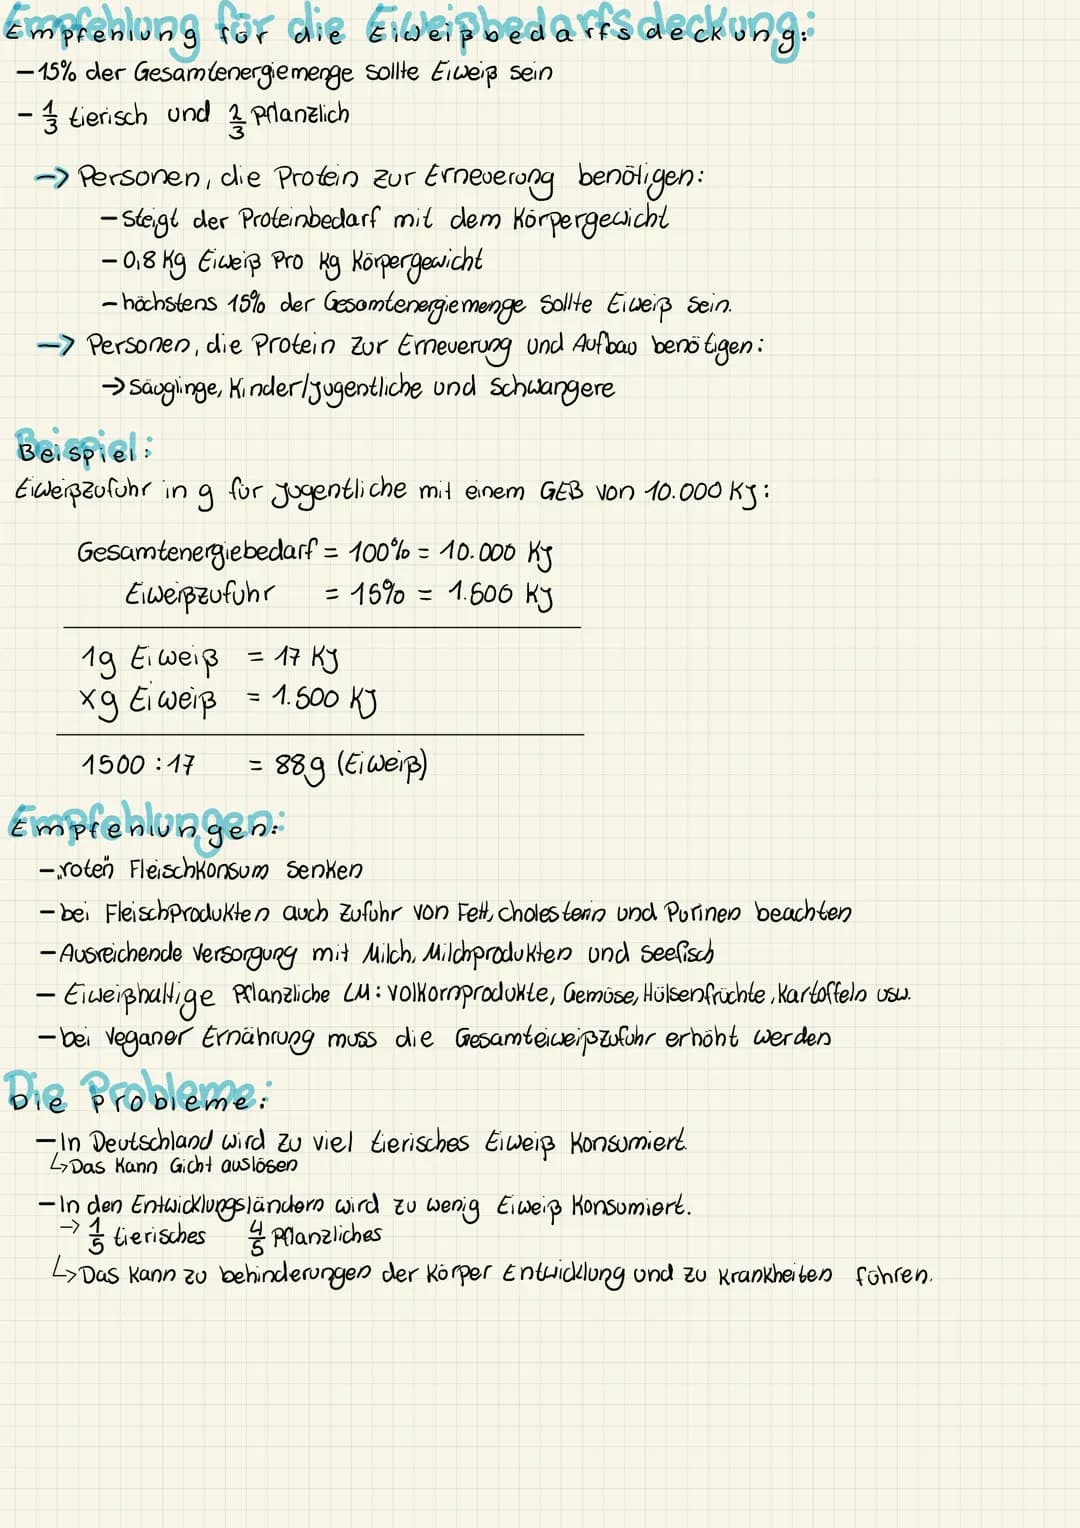 Empfehlung für die Eiweißbedarfsdeckung:
- 15% der Gesamtenergiemenge sollte Eiweiß sein
- 1/3 tierisch und 2/3 Pflanzlich
-> Personen, die Protein zur Erneuerung benötigen:
- Steigt der Proteinbedarf mit dem Körpergewicht
- 0,8 Kg Eiweiß Pro Kg Körpergewicht
- höchstens 15% der Gesamtenergiemenge sollte Eiweiß sein.
-> Personen, die Protein zur Erneuerung und Aufbau benötigen:
-> Säuglinge, Kinder/Jugentliche und Schwangere
Beispiel:
Eiweißzufuhr in g für Jugentliche mit einem GEB von 10.000 KJ:
Gesamtenergiebedarf = 100% = 10.000 KJ
Eiweißzufuhr = 15% = 1.500 KJ
1g Eiweiß = 17 KJ
xg Eiweiß = 1.500 KJ
1500 : 17 = 88g (Eiweiß)
Empfehlungen:
- „roten" Fleischkonsum senken
- bei Fleischprodukten auch Zufuhr von Fett, cholesterin und Purinen beachten
- Ausreichende Versorgung mit Milch, Milchprodukten und Seefisch
- Eiweißhaltige Pflanzliche LM: Volkornprodukte, Gemüse, Hülsenfrüchte, Kartoffeln usw.
- bei veganer Ernährung muss die Gesamteiweißzufuhr erhöht werden
Die Probleme:
- In Deutschland wird zu viel tierisches Eiweiß Konsumiert.
↳ Das Kann Gicht auslösen
- In den Entwicklungsländern wird zu wenig Eiweiß Konsumiert.
-> 1/5 tierisches 4/5 Pflanzliches
↳ Das Kann zu behinderungen der Körper Entwicklung und zu Krankheiten führen.